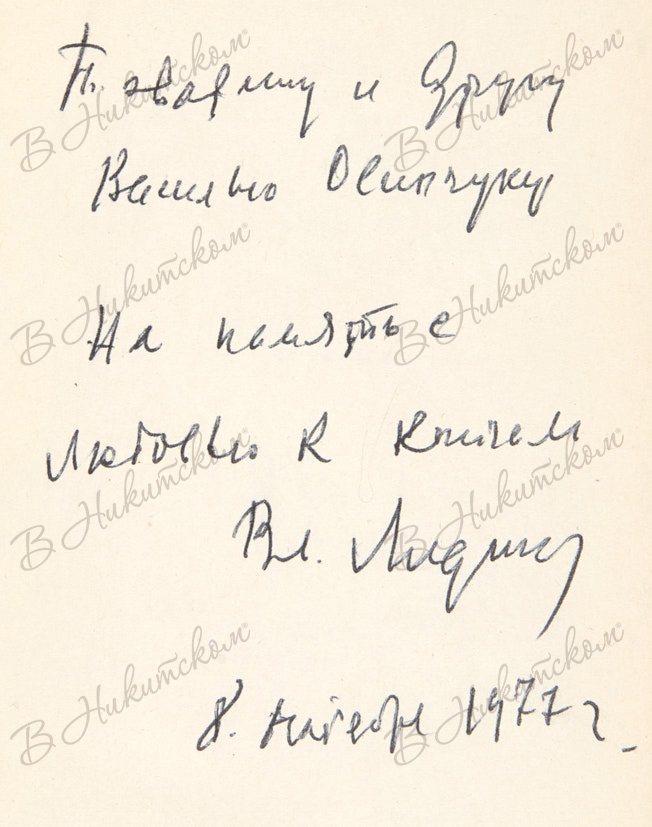 Товарищу и другу
Василию Осипчуку
На память с
любовью к книгам
Вл. Лидин
8. ноября 1977 г.
В Никитском
В Никитском
В Никитском
В Никитском
В Никитском
В Никитском
В Никитском
В Никитском